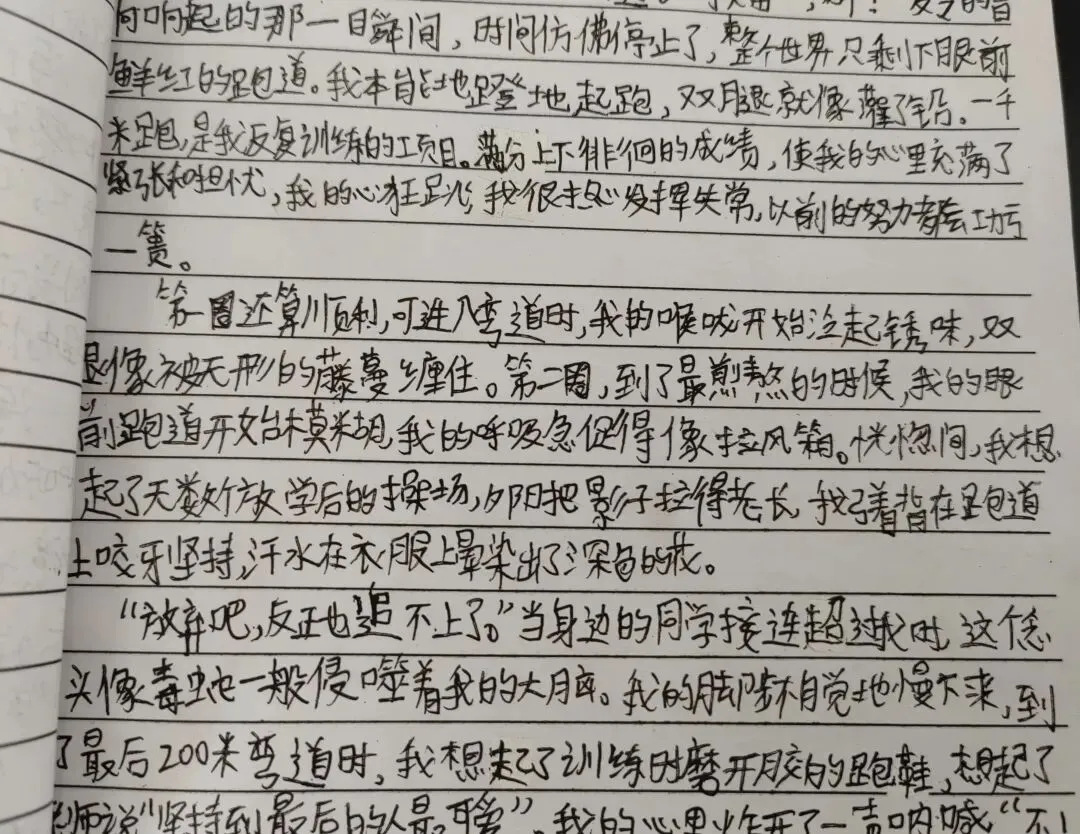 响起的那一瞬间，时间仿佛停止了，整个世界只剩下眼前
鲜红的跑道。我本能地蹬地起跑，双腿就像灌了铅。一千
米跑，是我反复训练的项目。满分上下徘徊的成绩，使我的心里充满了
紧张和担忧，我的心狂跳，我很担心发挥失常，以前的努力都会功亏
一篑。
第一圈还算顺利，可进入弯道时，我的喉咙开始泛起锈味，双
腿像被无形的藤蔓缠住。第二圈，到了最煎熬的时候，我的眼
前跑道开始模糊，我的呼吸急促得像拉风箱。恍惚间，我想
起了无数个放学后的操场，夕阳把影子拉得老长，我弓着背在跑道
上咬牙坚持，汗水在衣服上晕染出了深色的花。
“放弃吧，反正也追不上了。”当身边的同学接连超过我时，这个念
头像毒蛇一般侵噬着我的大脑。我的脚步不自觉地慢下来，到
了最后200米弯道时，我想起了训练时磨开胶的跑鞋，想起了
老师说“坚持到最后的人是”，我的心里炸开了一声呐喊“不